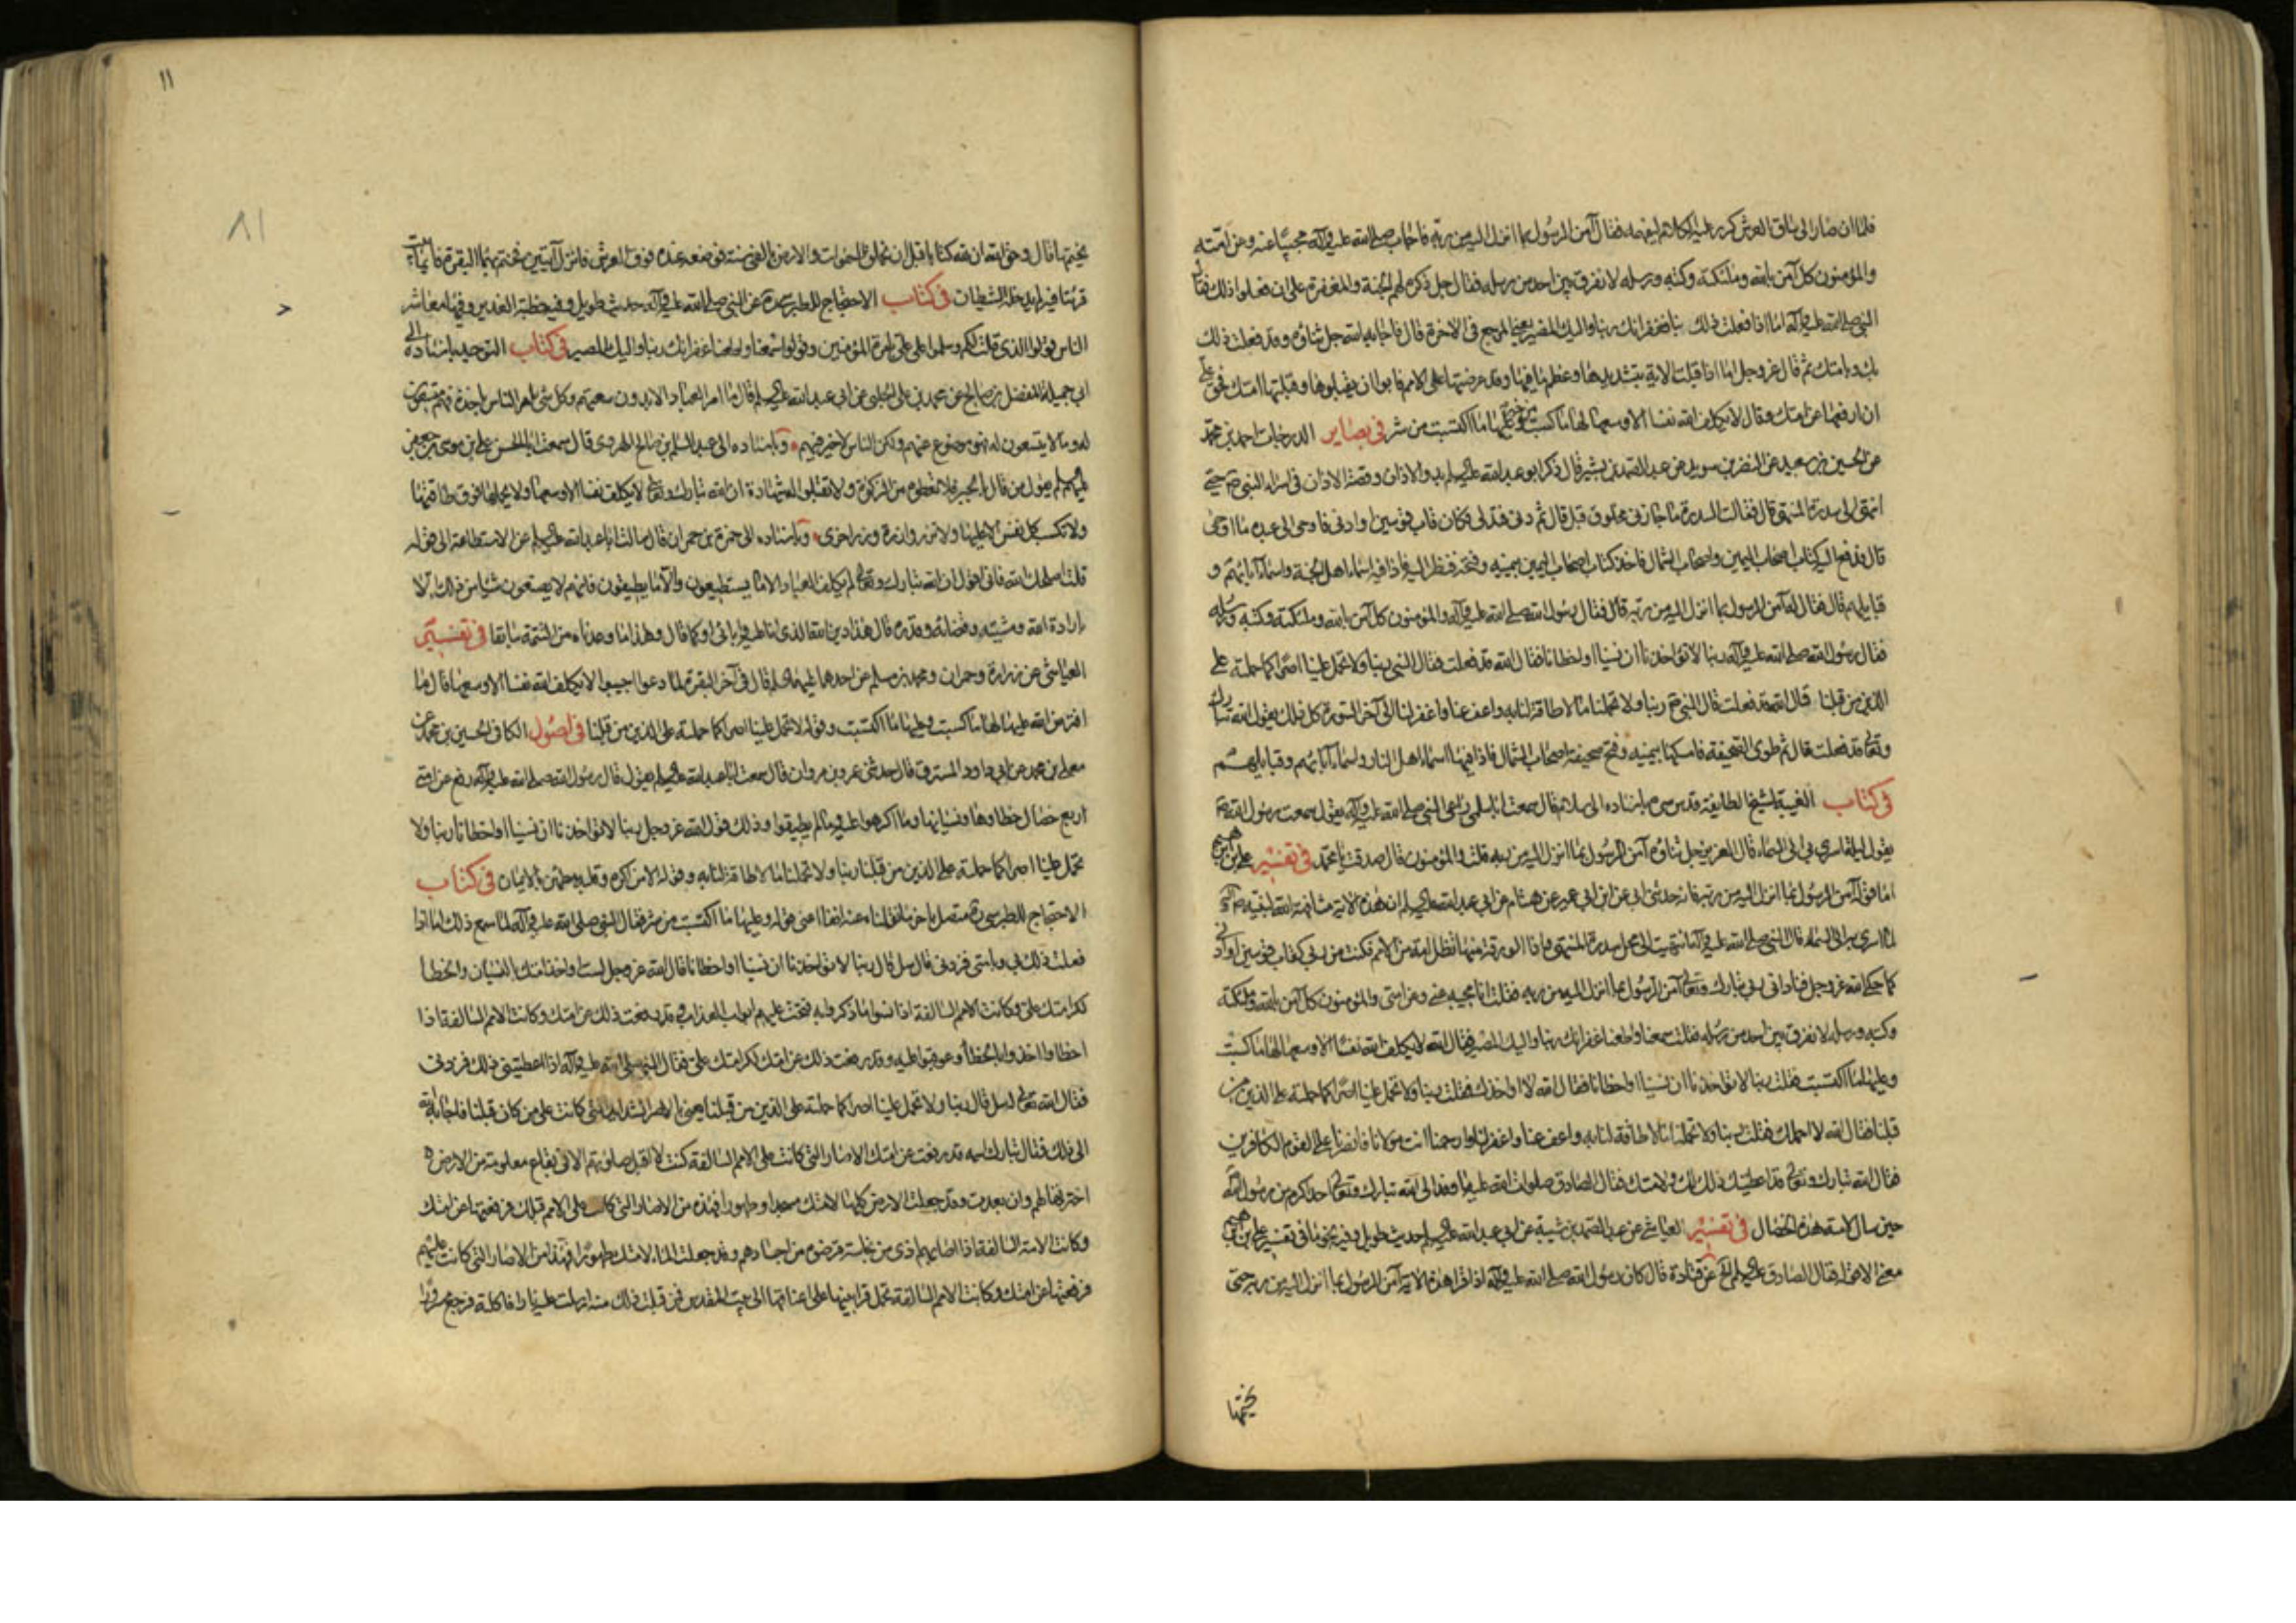 فلما ان صار الى ساق العرش كرر عليه الكلام ليفهمه فقال آمن الرسول بما انزل اليه من ربه فاجاب صلى الله عليه وآله مجيبا عنه وعن امته
والمؤمنون كل آمن بالله وملئكته وكتبه ورسله لا نفرق بين احد من رسله فقال جل ذكره لهم الجنة والمغفرة على ان فعلوا ذلك فقال
النبي صلى الله عليه وآله اما اذا فعلت ذلك بنا فغفرانك ربنا واليك المصير يعني المرجع في الاخرة قال فاجابه الله جل ثناؤه وقد فعلت ذلك
بك وبامتك ثم قال عز وجل اما اذا قبلت الاية بتشديدها وعظم ما فيها وقد عرضتها على الامم فابوا ان يقبلوها وقبلتها امتك فحق علي
ان ارفعها عن امتك وقال لا يكلف الله نفسا الا وسعها لها ما كسبت من خير وعليها ما اكتسبت من شر في بصاير الدرجات احمد بن محمد
عن الحسين بن سعيد عن النضر بن سويد عن عبد الصمد بن بشير قال ذكر ابو عبد الله عليه السلم بدو الاذان وقصة الاذان في اسراء النبي ص حتى
انتهى الى سدرة المنتهى قال فقالت السدرة ما جازني مخلوق قبل قال ثم دنى فتدلى فكان قاب قوسين او ادنى فاوحى الى عبده ما اوحى
قال فدفع اليه كتاب اصحاب اليمين واصحاب الشمال فاخذ كتاب اصحاب اليمين بيمينه وفتحه فنظر اليه فاذا فيه اسماء اهل الجنة واسماء آبائهم و
قبايلهم قال فقال له آمن الرسول بما انزل اليه من ربه قال فقال رسول الله صلى الله عليه وآله والمؤمنون كل آمن بالله وملئكته وكتبه ورسله
فقال رسول الله صلى الله عليه وآله ربنا لا تؤاخذنا ان نسينا او اخطانا فقال الله قد فعلت فقال النبي ربنا ولا تحمل علينا اصرا كما حملته على
الذين من قبلنا قال الله قد فعلت قال النبي ص ربنا ولا تحملنا ما لا طاقة لنا به واعف عنا واغفر لنا الى آخر السورة كل ذلك يقول الله تبارك
وتعالى قد فعلت قال ثم طوى الصحيفة فامسكها بيمينه وفتح صحيفة اصحاب الشمال فاذا فيها اسماء اهل النار واسماء آبائهم وقبايلهم
في كتاب الغيبة لشيخ الطايفة قدس سره باسناده الى سلام قال سمعت ابا سلمى راعي النبي صلى الله عليه وآله يقول سمعت رسول الله ص
يقول ليلة اسري بي الى السماء قال العزيز جل ثناؤه آمن الرسول بما انزل اليه من ربه قلت والمؤمنون قال صدقت يا محمد في تفسير علي بن ابرهيم
اما قوله آمن الرسول بما انزل اليه من ربه فانه حدثني ابي عن ابن ابي عمير عن هشام عن ابي عبد الله عليه السلم ان هذه الاية مشافهة الله لنبيه ص
لما اسري به الى السماء قال النبي صلى الله عليه وآله انتهيت الى محل سدرة المنتهى فاذا الورقة منها تظل امة من الامم فكنت من ربي كقاب قوسين او ادنى
كما حكى الله عز وجل فناداني ربي تبارك وتعالى آمن الرسول بما انزل اليه من ربه فقلت انا مجيبه عني وعن امتي والمؤمنون كل آمن بالله وملئكته
وكتبه ورسله لا نفرق بين احد من رسله فقلت سمعنا واطعنا غفرانك ربنا واليك المصير فقال الله لا يكلف الله نفسا الا وسعها لها ما كسبت
وعليها ما اكتسبت فقلت ربنا لا تؤاخذنا ان نسينا او اخطانا فقال الله لا اواخذك فقلت ربنا ولا تحمل علينا اصرا كما حملته على الذين من
قبلنا فقال الله لا احملك فقلت ربنا ولا تحملنا ما لا طاقة لنا به واعف عنا واغفر لنا وارحمنا انت مولانا فانصرنا على القوم الكافرين
فقال الله تبارك وتعالى قد اعطيتك ذلك لك ولامتك فقال الصادق صلوات الله عليه ما وفد الى الله تبارك وتعالى احد اكرم من رسول الله
حين سال لامته هذه الخصال في تفسير العياشي عن عبد الصمد بن شيبة عن ابي عبد الله عليه السلم حديث طويل وفيه نحو ما في تفسير علي بن ابرهيم
معنى الا قوله فقال الصادق عليه السلم الخ عن قتادة قال كان رسول الله صلى الله عليه وآله اذا قرا هذه الاية آمن الرسول بما انزل اليه من ربه حتى
يختمها
١١
٨١
يختمها قال وحق الله ان لله كتابا قبل ان يخلق السموات والارض بالفي سنة فوضعه عنده فوق العرش فانزل آيتين فختم بهما البقرة فايما بيت
قرئتا فيه لم يدخله الشيطان في كتاب الاحتجاج للطبرسي ره عن النبي صلى الله عليه وآله حديث طويل وفيه خطبة الغدير وفيها معاشر
الناس قولوا الذي قلت لكم وسلموا على علي بامرة المؤمنين وقولوا سمعنا واطعنا غفرانك ربنا واليك المصير في كتاب التوحيد باسناده الى
ابي جميلة المفضل بن صالح عن محمد بن علي الحلبي عن ابي عبد الله عليه السلم قال ما امر العباد الا بدون سعتهم وكل شئ امر الناس باخذه فهم متسعون
له وما لا يتسعون له فهو موضوع عنهم ولكن الناس لا خير فيهم وباسناده الى عبد السلم بن صالح الهروي قال سمعت ابا الحسن علي بن موسى بن جعفر
عليهم السلم يقول من قال بالجبر فلا تعطوه من الزكوة ولا تقبلوا له شهادة ان الله تبارك وتعالى لا يكلف نفسا الا وسعها ولا يحملها فوق طاقتها
ولا تكسب كل نفس الا عليها ولا تزر وازرة وزر اخرى وباسناده الى حمزة بن حمران قال سالت ابا عبد الله عليه السلم عن الاستطاعة الى قوله
قلت اصلحك الله فاني اقول ان الله تبارك وتعالى لم يكلف العباد الا ما يستطيعون والا ما يطيقون فانهم لا يصنعون شيئا من ذلك الا
بارادة الله ومشيته وقضائه وقدره قال هذا دين الله الذي انا عليه وآبائي او كما قال وهذا ما وعدناه من التتمة سابقا في تفسير
العياشي عن زرارة وحمران ومحمد بن مسلم عن احدهما عليهما السلم قال في آخر البقرة لما دعوا اجيبوا لا يكلف الله نفسا الا وسعها قال ما
افترض الله عليها لها ما كسبت وعليها ما اكتسبت وقوله لا تحمل علينا اصرا كما حملته على الذين من قبلنا في اصول الكافي الحسين بن محمد عن
معلى بن محمد عن ابي داود المسترق قال حدثني عمرو بن مروان قال سمعت ابا عبد الله عليه السلم يقول قال رسول الله صلى الله عليه وآله رفع عن امتي
اربع خصال خطاوها ونسيانها وما اكرهوا عليه وما لم يطيقوا وذلك قول الله عز وجل ربنا لا تؤاخذنا ان نسينا او اخطانا ربنا ولا
تحمل علينا اصرا كما حملته على الذين من قبلنا ربنا ولا تحملنا ما لا طاقة لنا به وقوله الا من اكره وقلبه مطمئن بالايمان في كتاب
الاحتجاج للطبرسي ره متصل باخر ما نقلنا عنه انفا اعني قوله وعليها ما اكتسبت من شر فقال النبي صلى الله عليه وآله لما سمع ذلك اما اذا
فعلت ذلك بي وبامتي فزدني قال سل قال ربنا لا تؤاخذنا ان نسينا او اخطانا قال الله عز وجل لست اواخذ امتك بالنسيان والخطأ
لكرامتك علي وكانت الامم السالفة اذا نسوا ما ذكروا به فتحت عليهم ابواب العذاب وقد رفعت ذلك عن امتك وكانت الامم السالفة اذا
اخطاوا اخذوا بالخطأ وعوقبوا عليه وقد رفعت ذلك عن امتك لكرامتك علي فقال النبي صلى الله عليه وآله اذا اعطيتني ذلك فزدني
فقال الله تعالى له سل قال ربنا ولا تحمل علينا اصرا كما حملته على الذين من قبلنا يعني بالاصر الشدايد التي كانت على من كان قبلنا فاجابه الله
الى ذلك فقال تبارك اسمه قد رفعت عن امتك الاصار التي كانت على الامم السالفة كنت لا اقبل صلوتهم الا في بقاع معلومة من الارض
اخترتها لهم وان بعدت وقد جعلت الارض كلها لامتك مسجدا وطهورا فهذه من الاصار التي كانت على الامم قبلك فرفعتها عن امتك
وكانت الامة السالفة اذا اصابهم اذى من نجاسة قرضوه من اجسادهم وقد جعلت الماء لامتك طهورا فهذا من الاصار التي كانت عليهم
فرفعتها عن امتك وكانت الامم السالفة تحمل قرابينها على اعناقها الى بيت المقدس فمن قبلت ذلك منه ارسلت عليه نارا فاكلته فرجع مسرورا